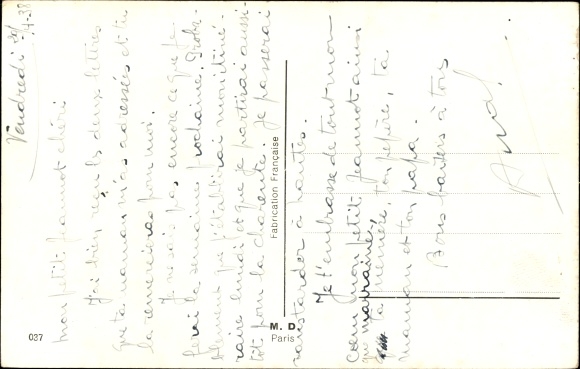 Vendredi
4-38
mon petit jeannot chéri
J'ai bien reçu les deux lettres
que ta maman m'a adressées et tu
la remercieras pour moi.
Je ne sais pas encore ce que je
ferai la semaine prochaine. Proba-
blement que j'établirai mon itiné-
raire lundi et que je partirai aussi-
tôt pour la Charente. Je passerai
sans tarder à
Je t'embrasse de tout mon
cœur mon petit jeannot ainsi
que marraine,
ta mémère, ton pépère, ta
maman et ton papa.
Bons baisers à tous
Fabrication Française
M. D.
Paris
037